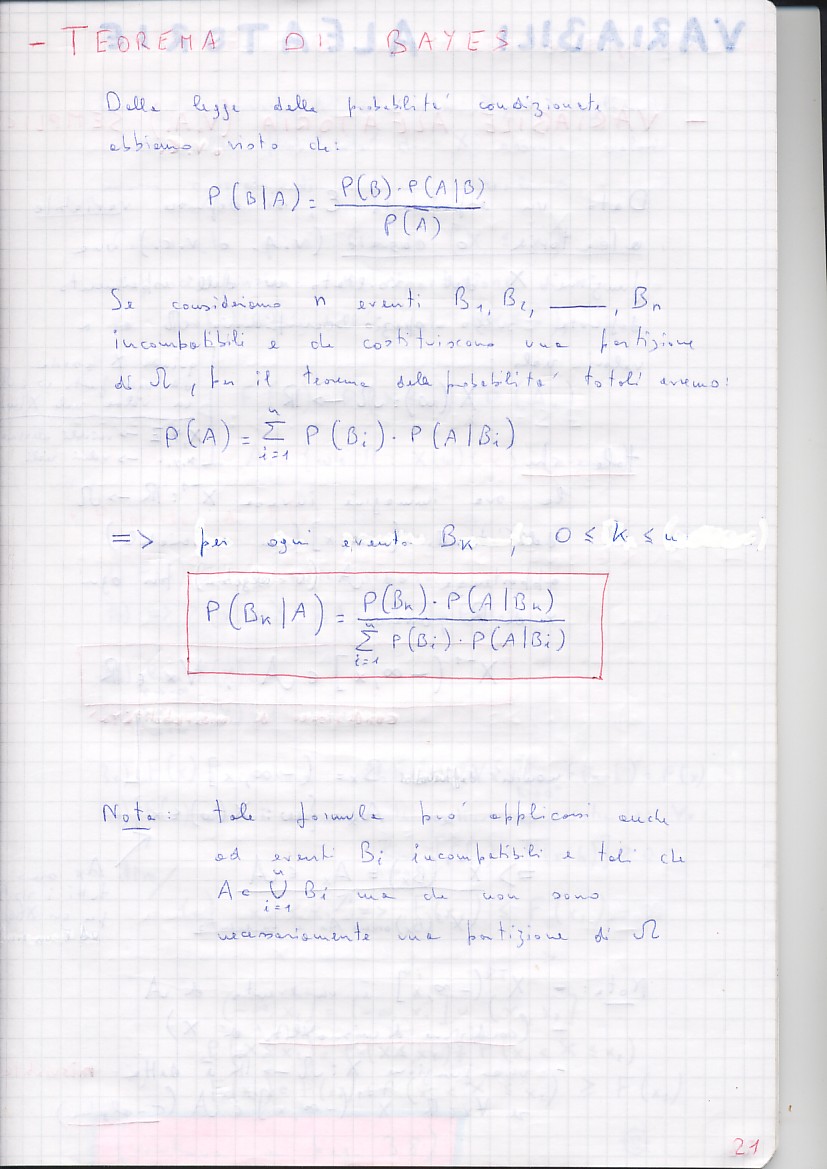 - TEOREMA DI BAYES
Dalla legge delle probabilità condizionate
abbiamo visto che:
P(B|A) = P(B)·P(A|B) / P(A)
Se consideriamo n eventi B₁, B₂, ——, Bₙ
incompatibili e che costituiscono una partizione
di Ω, per il teorema delle probabilità totali avremo:
P(A) = ∑ᵢ₌₁ⁿ P(Bᵢ)·P(A|Bᵢ)
=> per ogni evento Bₖ, 0 ≤ k ≤ n
P(Bₖ|A) = P(Bₖ)·P(A|Bₖ) / ∑ᵢ₌₁ⁿ P(Bᵢ)·P(A|Bᵢ)
Nota: tale formula può applicarsi anche
ad eventi Bᵢ incompatibili e tali che
A ⊂ ⋃ᵢ₌₁ⁿ Bᵢ ma che non sono
necessariamente una partizione di Ω
21